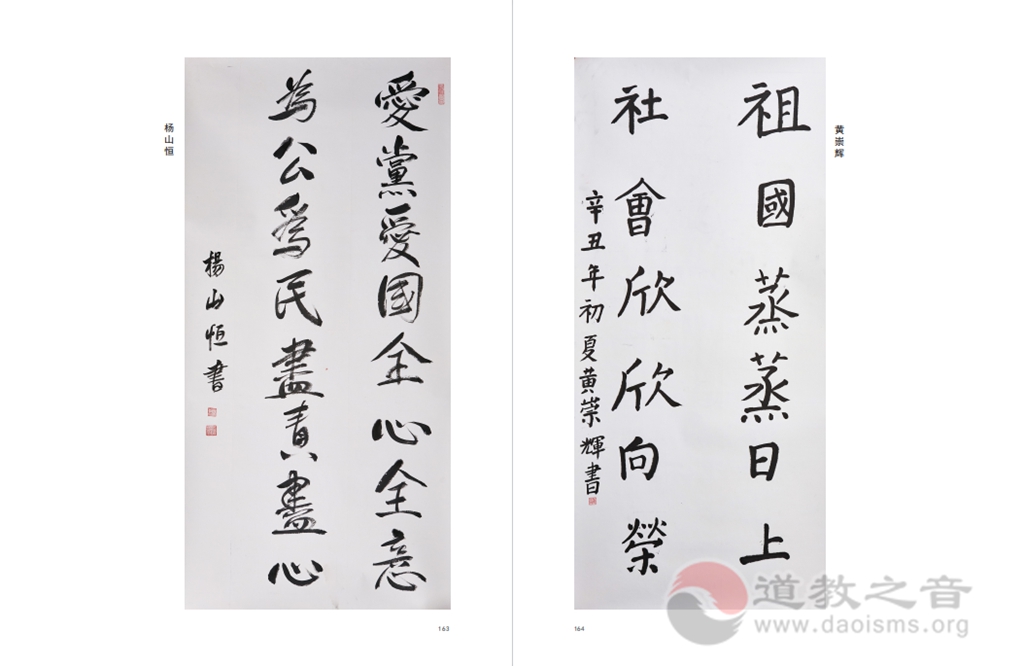 杨山恒
愛黨愛國全心全意
為公爲民盡責盡心
楊山恒書
163
黄崇辉
祖國蒸蒸日上
社會欣欣向榮
辛丑年初夏黄崇輝書
164
道教之音
www.daoisms.org